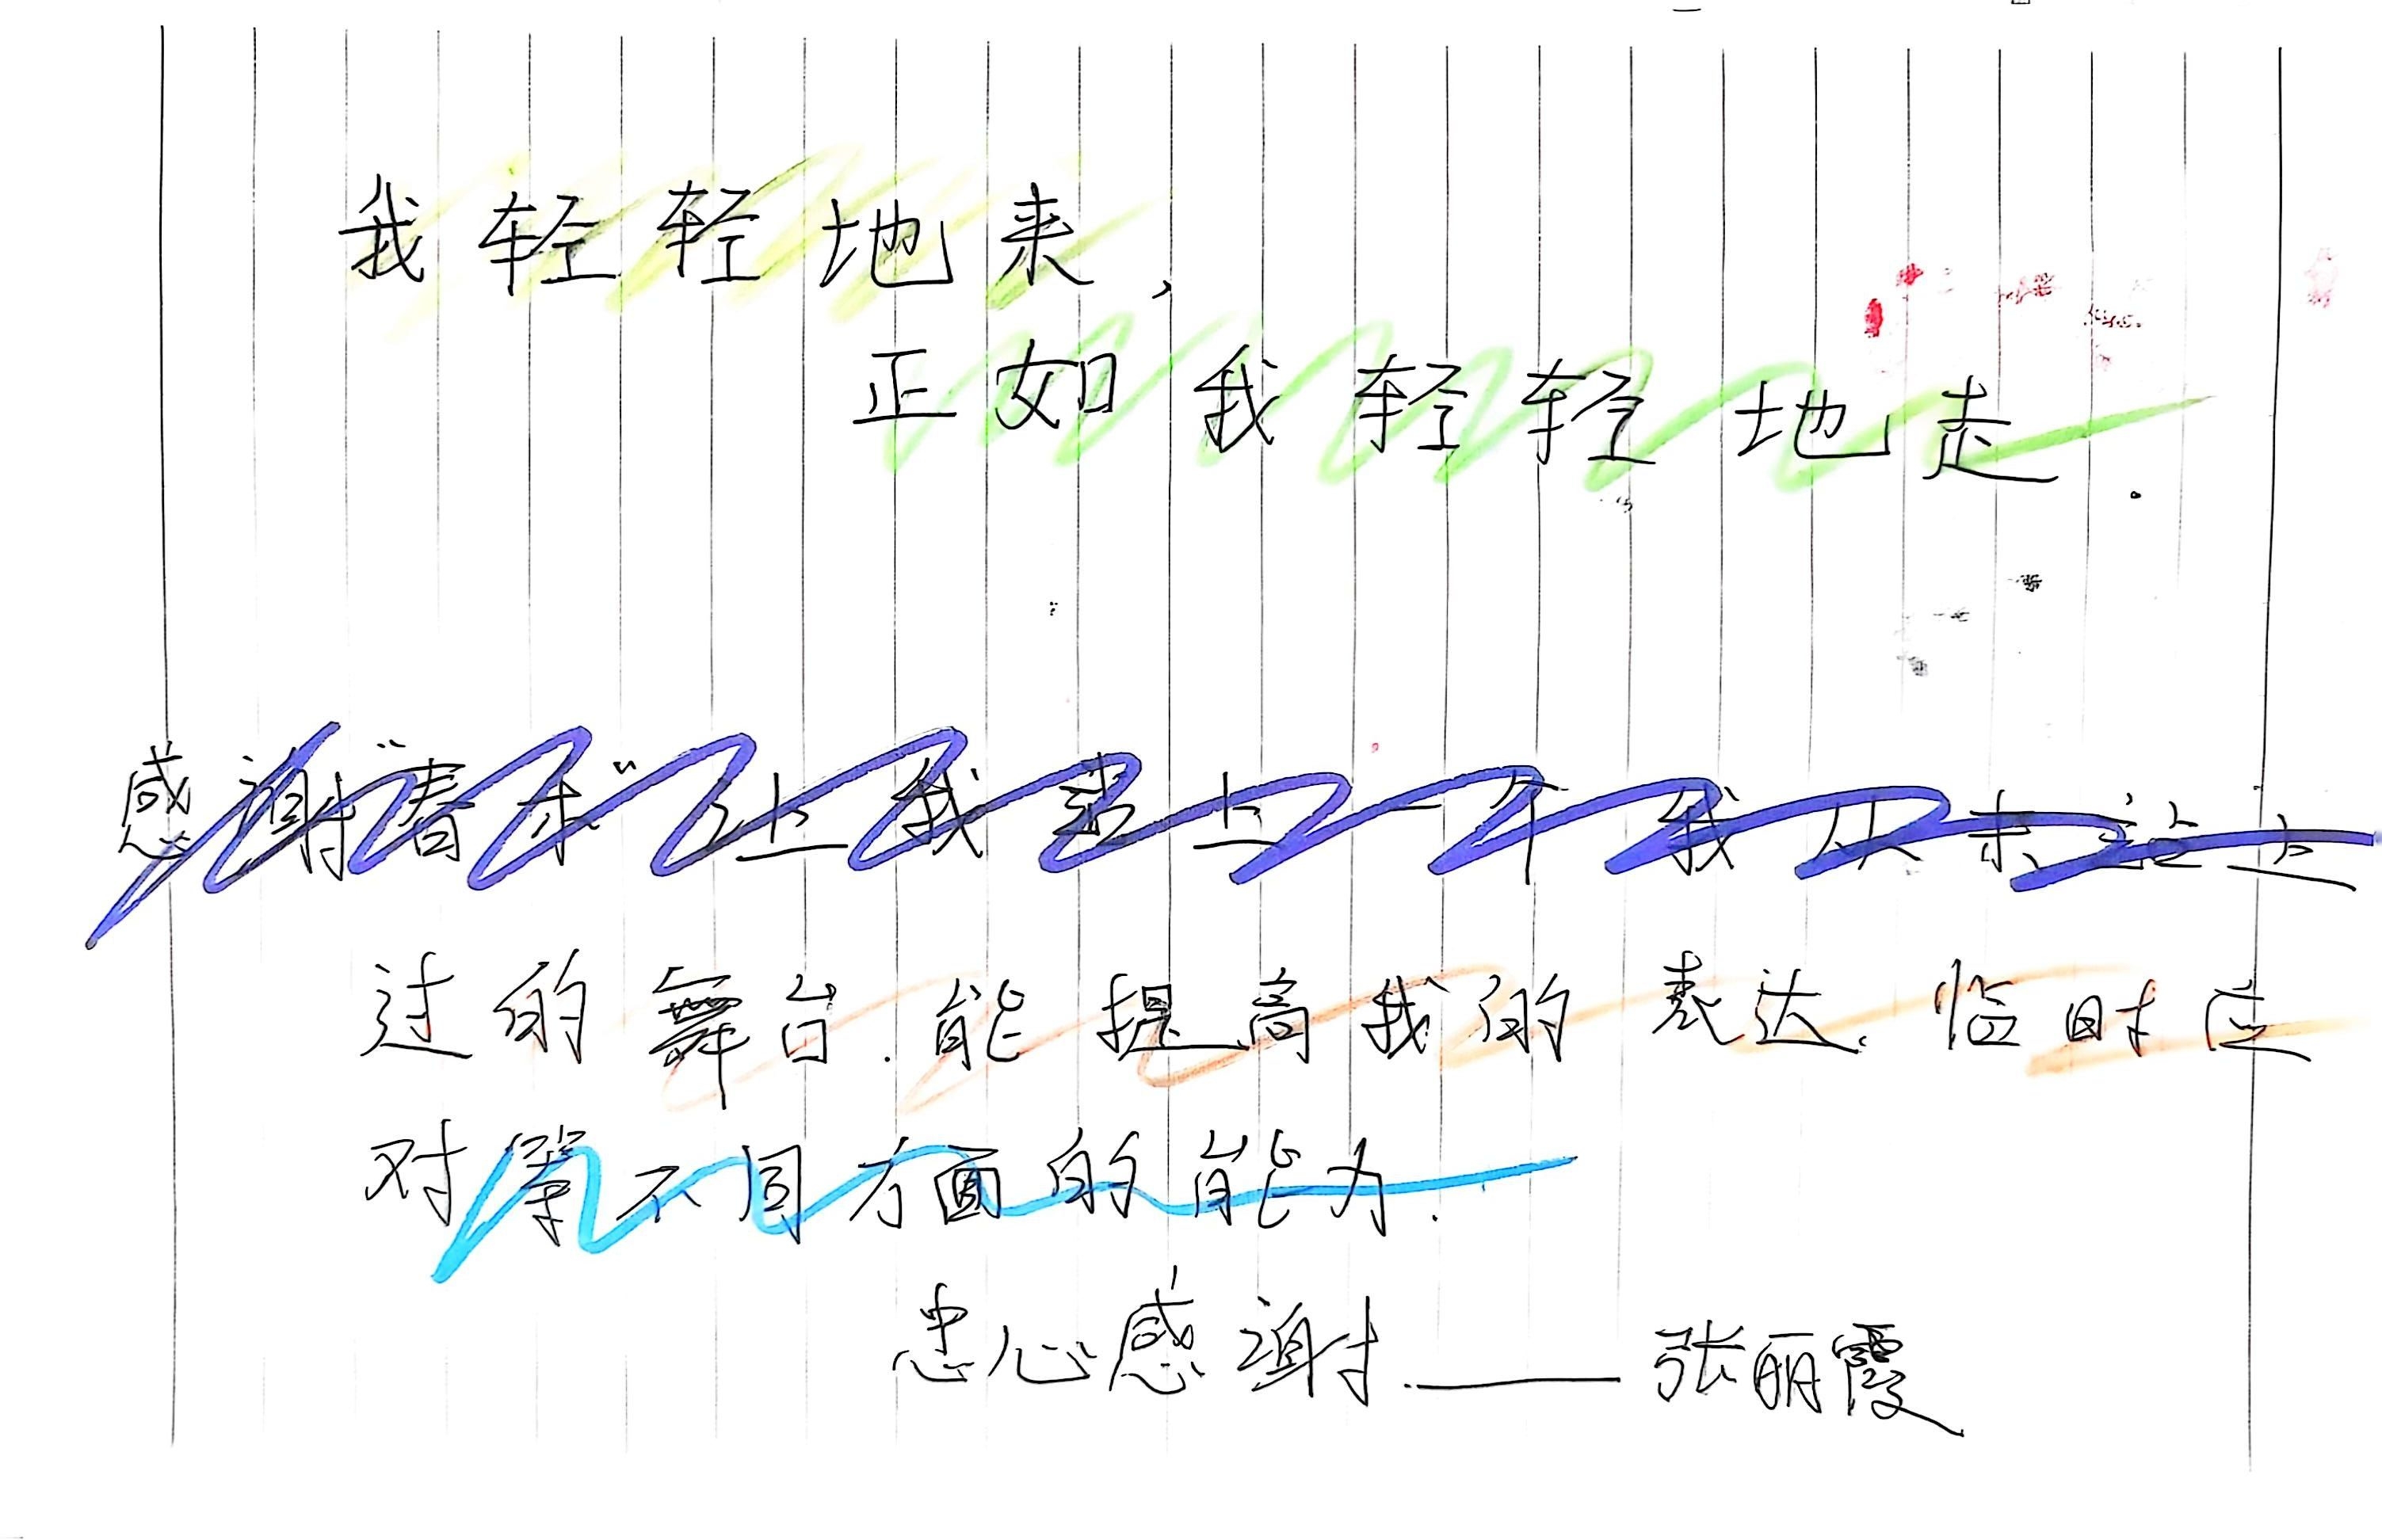 我轻轻地来,
正如我轻轻地走.
感谢"春"让我上一个我从未站上
过的舞台.能提高我的表达.临时应
对等不同方面的能力.
忠心感谢.——张丽霞